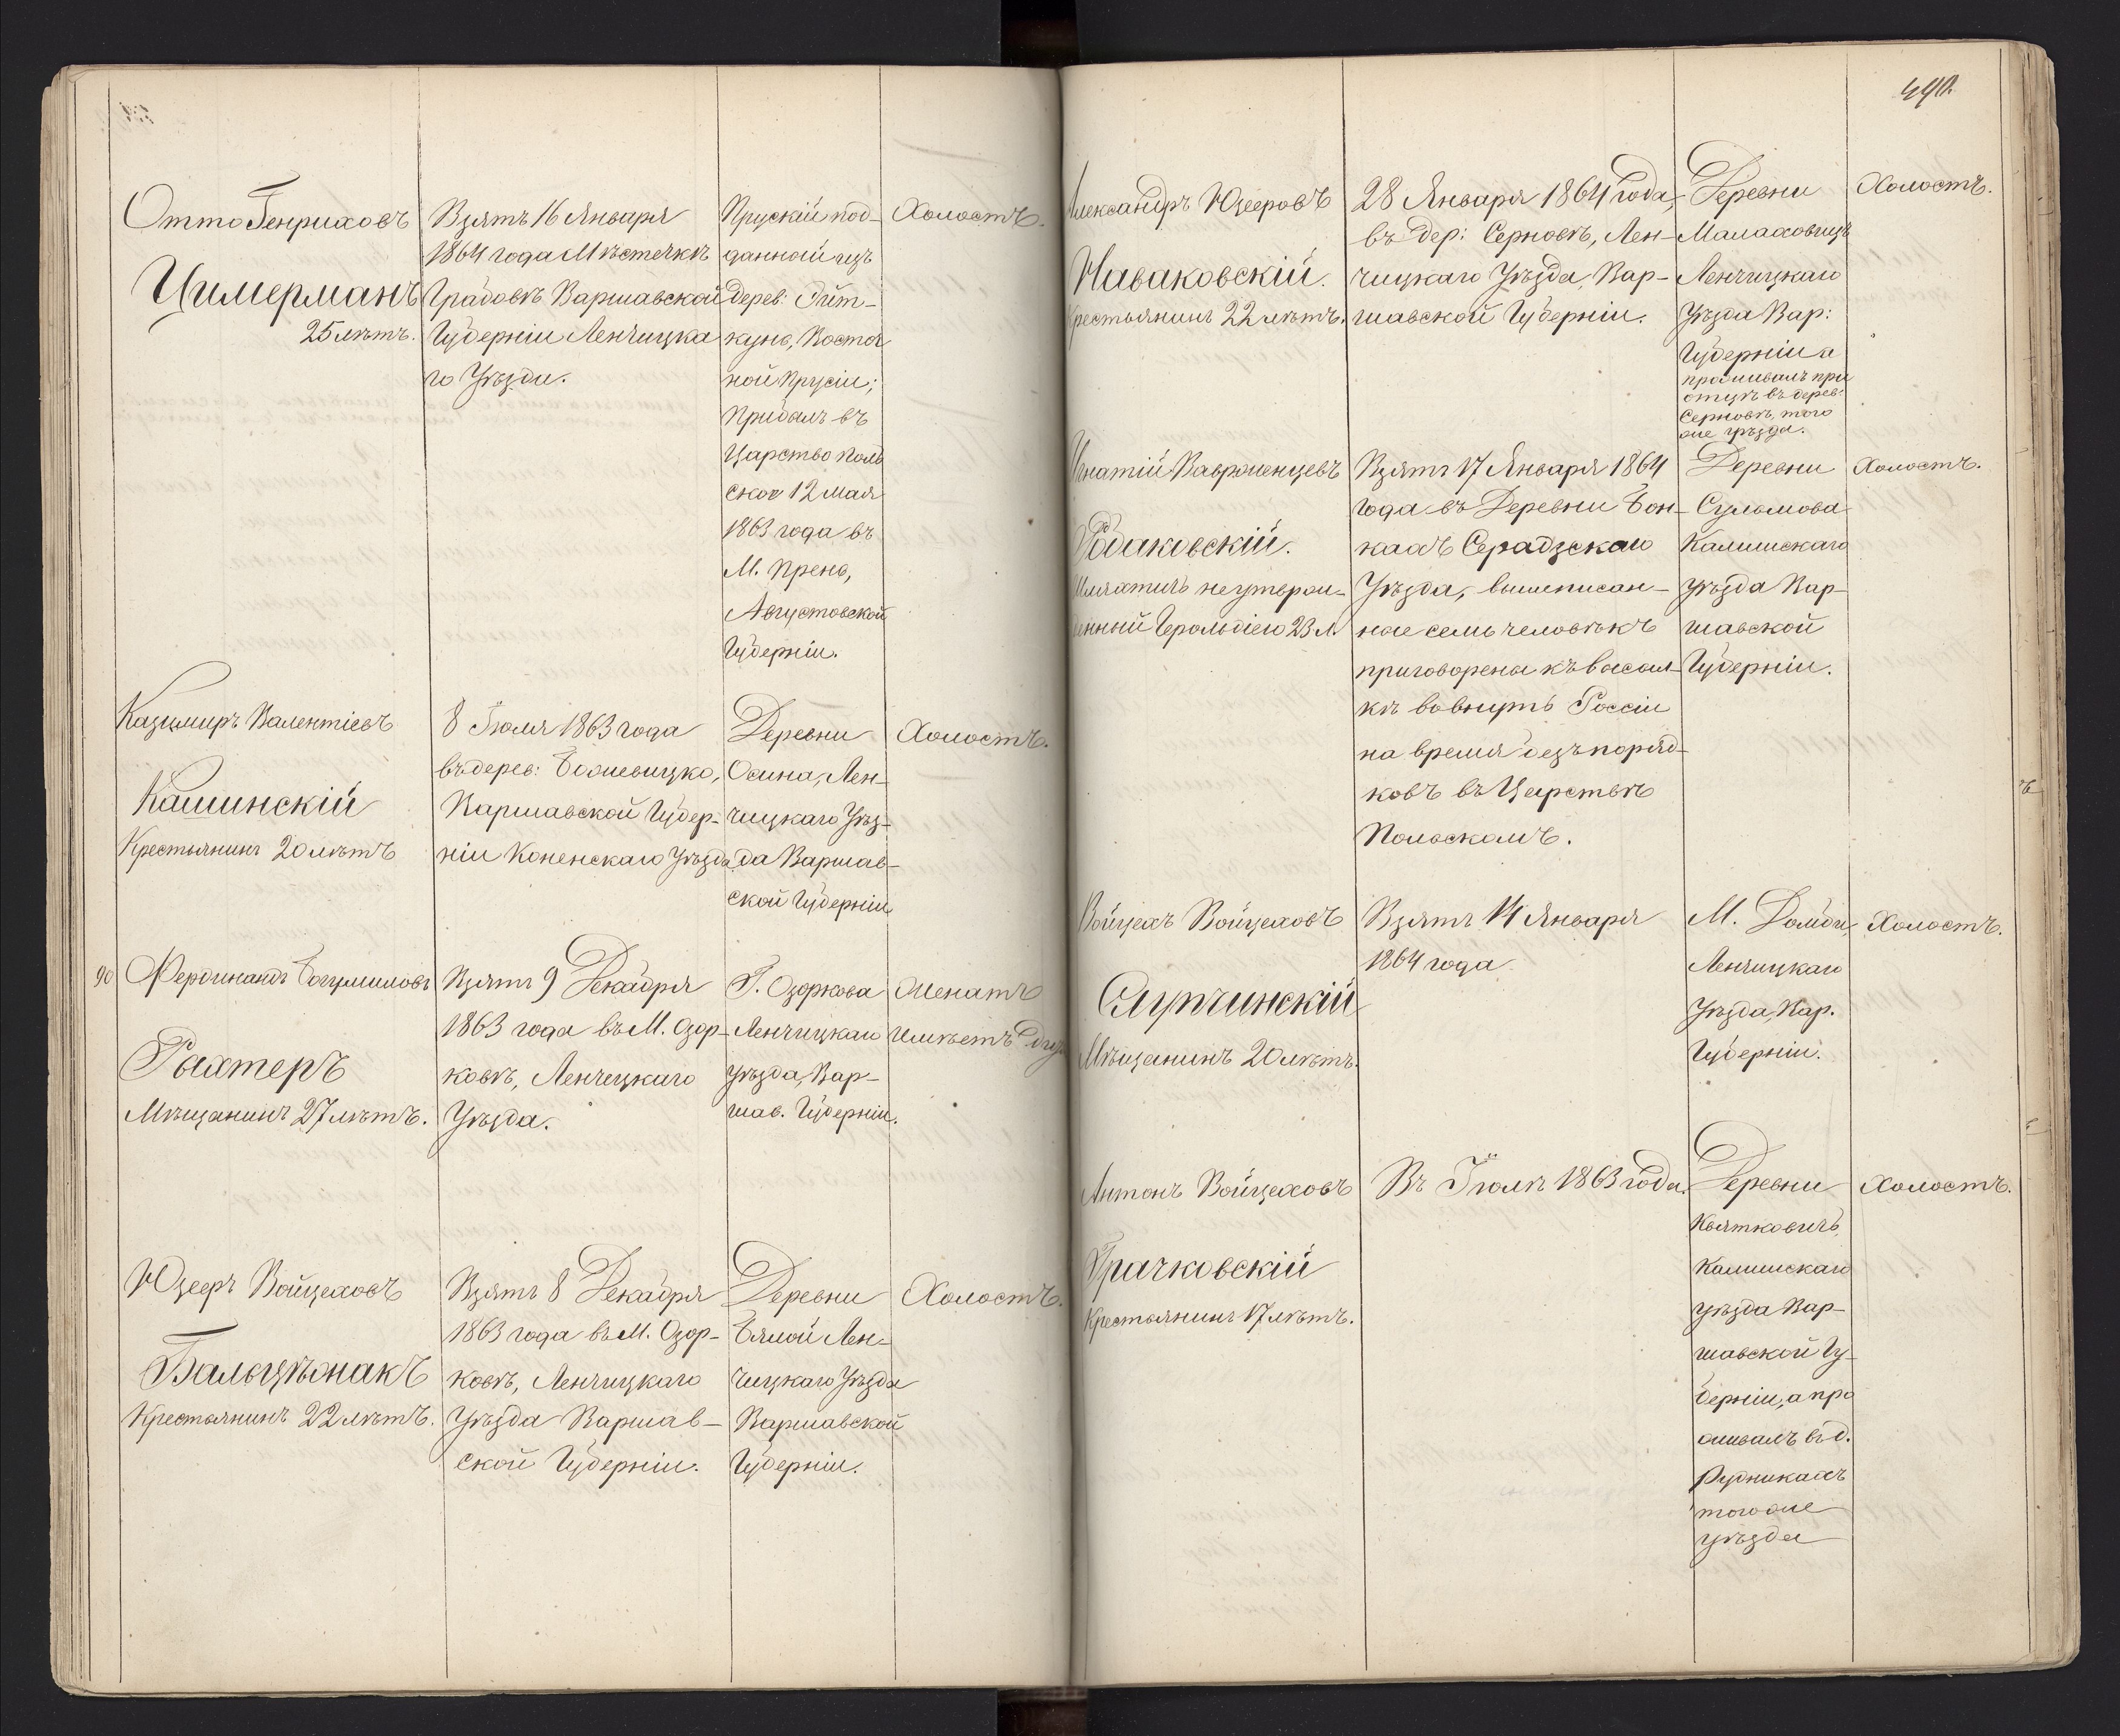 Отто Генриховъ
Цимерманъ
25 лѣтъ.
Взятъ 16 Января
1864 года Мѣстечкѣ
Градовѣ Варшавской
Губерніи Ленчицка
го Уѣзда.
Прускій под-
данной изъ
дерев: Эйт-
куно, Восточ
ной Прусіи;
Прибылъ въ
Царство Поль
ское 12 мая
1863 года въ
М. Прено,
Августовской
Губерніи.
Холостъ.
Казимиръ Валентіевъ
Кашинскій
Крестьянинъ 20 лѣтъ
8 Іюля 1863 года
въ дерев:
Варшавской Губер-
ніи Коненскаго Уѣзда
Деревни
Осина, Лен-
чицкаго Уѣз-
да Варшав-
ской Губерніи
Холостъ.
90
Фердинандъ Богумиловъ
Рахтеръ
Мѣщанинъ 27 лѣтъ.
Взятъ 9 Декабря
1863 года въ М. Озор-
ковѣ, Ленчецкаго
Уѣзда.
Г. Озоркова
Ленчицкаго
уѣзда, Вар-
шав. Губерніи.
Женатъ
имѣетъ
Юзефъ Войцеховъ
Бальцѣжакъ
Крестьянинъ 22 лѣтъ.
Взятъ 8 Декабря
1863 года въ М. Озор-
ковѣ, Ленчицкаго
Уѣзда Варшав-
ской Губерніи.
Деревни
Бялой Лен-
чицкаго Уѣзда
Варшавской
Губерніи.
Холостъ.
Александръ Юзефовъ
Наваковскій.
Крестьянинъ 22 лѣтъ.
28 Января 1864 года,
въ дер: Серновѣ, Лен-
чицкаго Уѣзда, Вар-
шавской Губерніи.
Деревни
Малаховицъ
Ленчицкаго
Уѣзда Вар:
Губерніи а
проживалъ при
отцѣ въ дерев:
Серновѣ, того
же уѣзда.
Холостъ.
Игнатій Вавржинцевъ
Рдаковскій.
Шляхтичъ неутверж-
денный Герольдіею 23 л.
Взятъ 17 Января 1864
года въ Деревни Бон-
кахъ Серадзскаго
Уѣзда, вышеписан-
ное семь человѣкъ
приговорены къ высыл-
кѣ вовнутрь Россіи
на время безъпоряд-
ковъ въ Царствѣ
Польскомъ.
Деревни
Сульмова
Калишскаго
уѣзда Вар-
шавской
Губерніи.
Холостъ.
Войцехъ Войцеховъ
Слупчинскій
Мѣщанинъ 20 лѣтъ.
Взятъ 14 Января
1864 года
М. Домби,
Ленчицкаго
Уѣзда, Вар.
Губерніи.
Холостъ.
Антонъ Войцеховъ
Грачковскій
Крестьянинъ 17 лѣтъ.
Въ Іюлѣ 1863 года.
Деревни
Квятковичъ,
Калишскаго
уѣзда Вар-
шавской Гу-
берніи, а про
живалъ въ д.
Рудникахъ
того же
уѣзда
Холостъ.